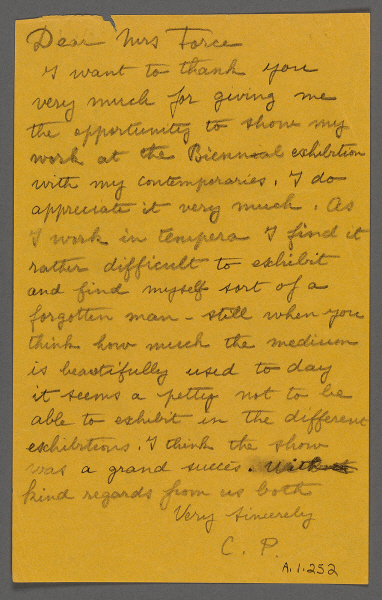 Dear Mrs Force
I want to thank you
very much for giving me
the opportunity to show my
work at the Biennial exhibition
with my contemporaries. I do
appreciate it very much. As
I work in tempera I find it
rather difficult to exhibit
and find myself sort of a
forgotten man - still when you
think how much the medium
is beautifully used to day
it seems a petty not to be
able to exhibit in the different
exhibitions. I think the show
was a grand succés. With
kind regards from us both
Very Sincerely
C. P.
A.1.252